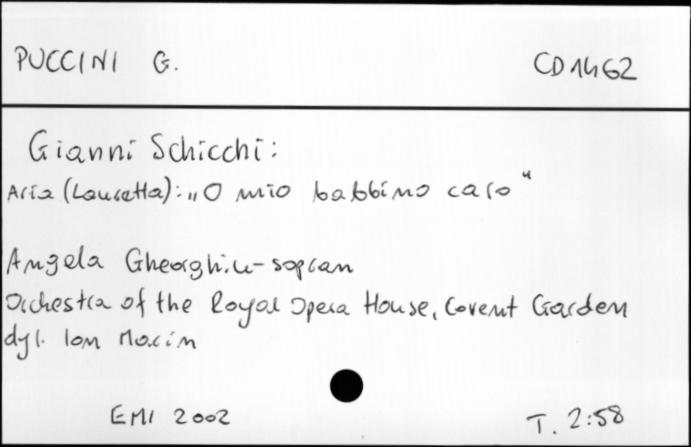 PUCCINI G. CD 1462
Gianni Schicchi:
Aria (Lauretta): „O mio babbino caro"
Angela Gheorghiu - sopran
Orchestra of the Royal Opera House, Covent Garden
dyr. Ion Marin
EMI 2002 T. 2:58